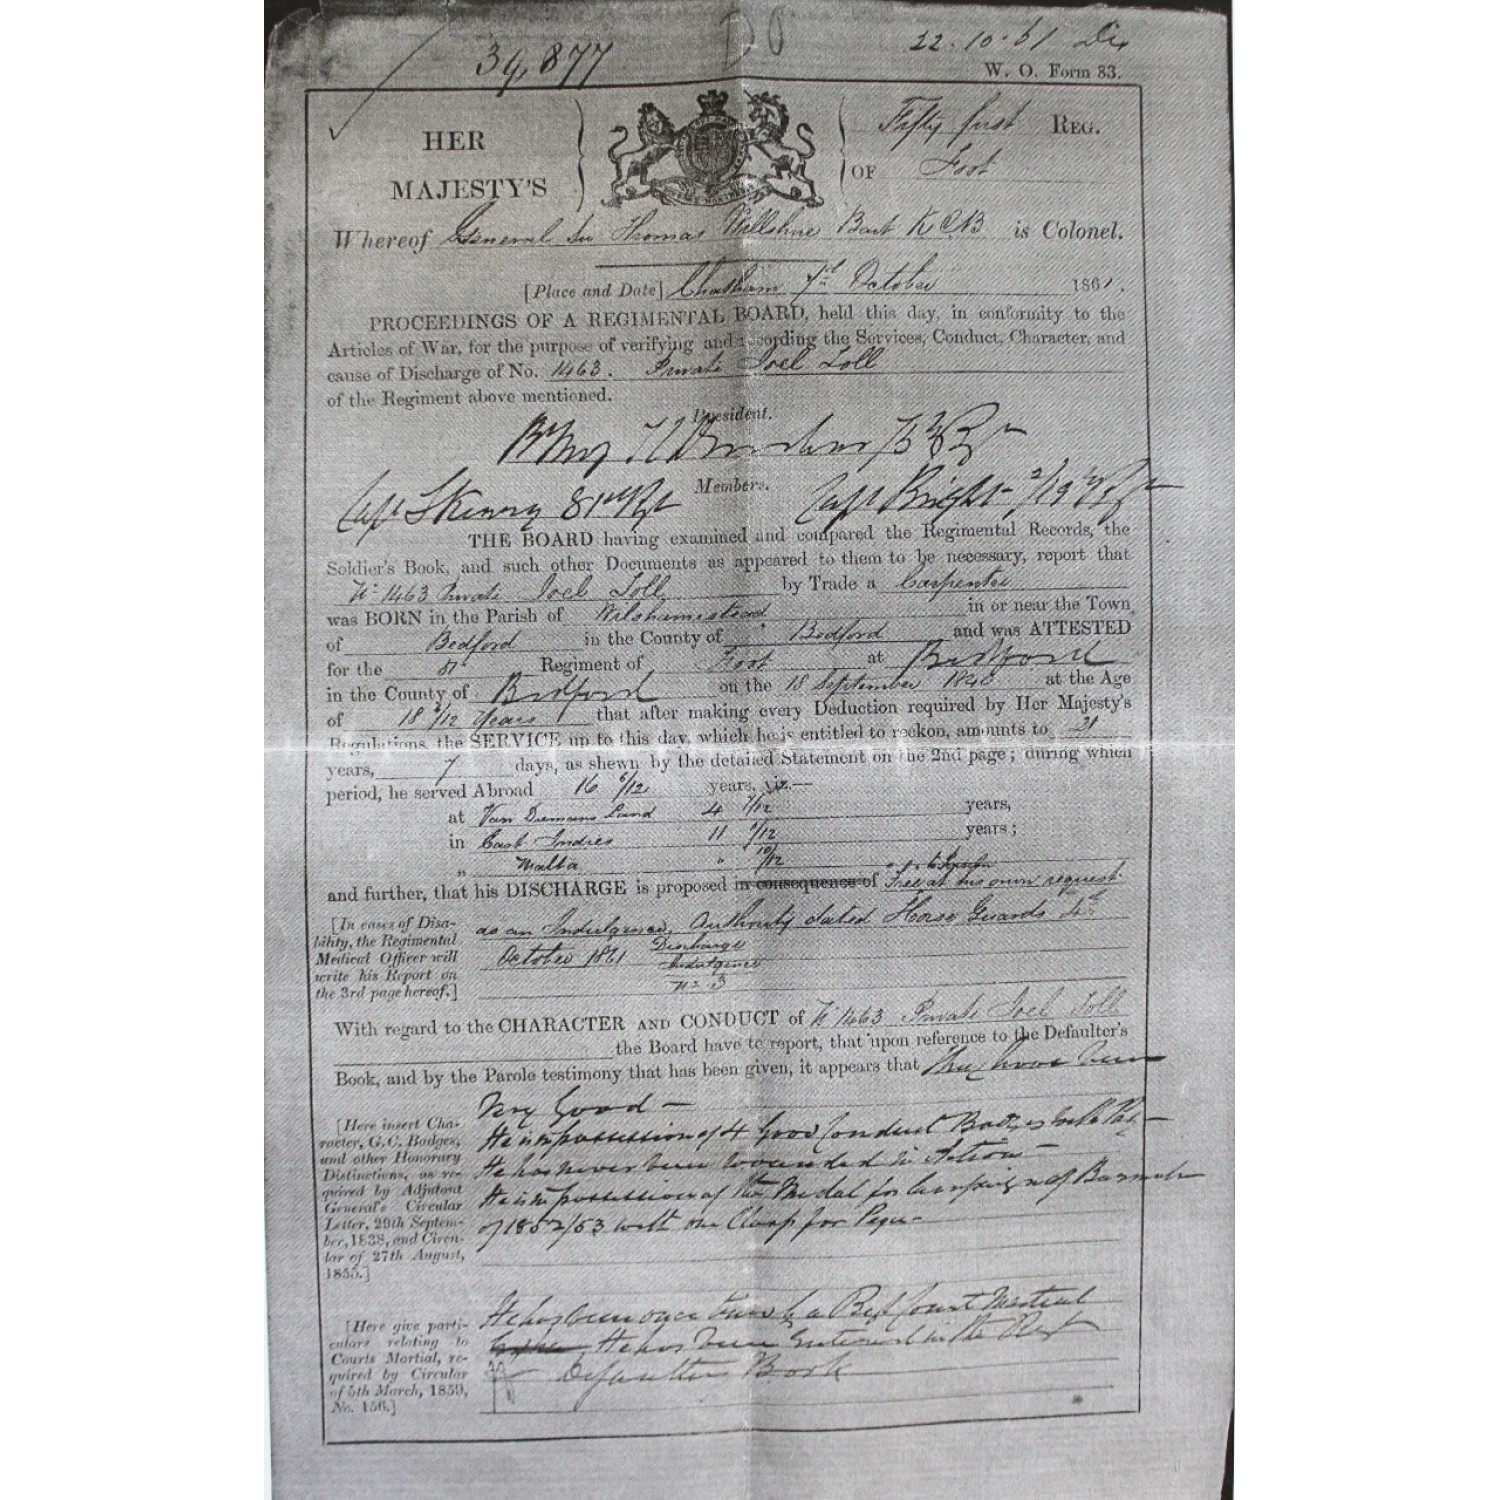 34,877
22.10.61
W. O. Form 83.
HER MAJESTY'S
Fifty first REG.
OF Foot
Whereof General Sir Thomas Willshire Bart KCB is Colonel.
[Place and Date] Chatham October 1861.
PROCEEDINGS OF A REGIMENTAL BOARD, held this day, in conformity to the
Articles of War, for the purpose of verifying and recording the Services, Conduct, Character, and
cause of Discharge of No. 1463. Private Joel Loll
of the Regiment above mentioned.
President.
Members.
Capt 81st Rgt Capt Bright 2/19th Rgt
THE BOARD having examined and compared the Regimental Records, the
Soldier's Book, and such other Documents as appeared to them to be necessary, report that
No 1463 Private Joel Loll by Trade a Carpenter
was BORN in the Parish of Wilshamstead in or near the Town
of Bedford in the County of Bedford and was ATTESTED
for the Regiment of Foot at Bedford
in the County of Bedford on the 18 September 1840 at the Age
of 18 Years that after making every Deduction required by Her Majesty's
Regulations, the SERVICE up to this day, which he is entitled to reckon, amounts to 21
years, 7 days, as shewn by the detailed Statement on the 2nd page; during which
period, he served Abroad 16 6/12 years, viz.—
at Van Diemans Land 4 7/12 years,
in East Indies 11 1/12 years;
„ Malta " 10/12
and further, that his DISCHARGE is proposed in consequence of Free at his own request
[In cases of Disability, the Regimental Medical Officer will write his Report on the 3rd page hereof.]
as an Indulgence. Authority dated Horse Guards 4th
October 1861 Discharge
Indulgence
No 3
With regard to the CHARACTER AND CONDUCT of No 1463 Private Joel Loll
the Board have to report, that upon reference to the Defaulter's
Book, and by the Parole testimony that has been given, it appears that they have been
[Here insert Character, G.C. Badges, and other Honorary Distinctions, as required by Adjutant General's Circular Letter, 29th September, 1838, and Circular of 27th August, 1855.]
Very Good —
He is in possession of 4 Good Conduct Badges
He has never been wounded in Action —
He is in possession of the Medal for Campaign of Burmah
of 1852/53 with one Clasp for Pegu —
[Here give particulars relating to Courts Martial, required by Circular of 5th March, 1859, No. 156.]
He has been once tried by a Regt Court Martial
He has been Entered in the Regt
Defaulters Book